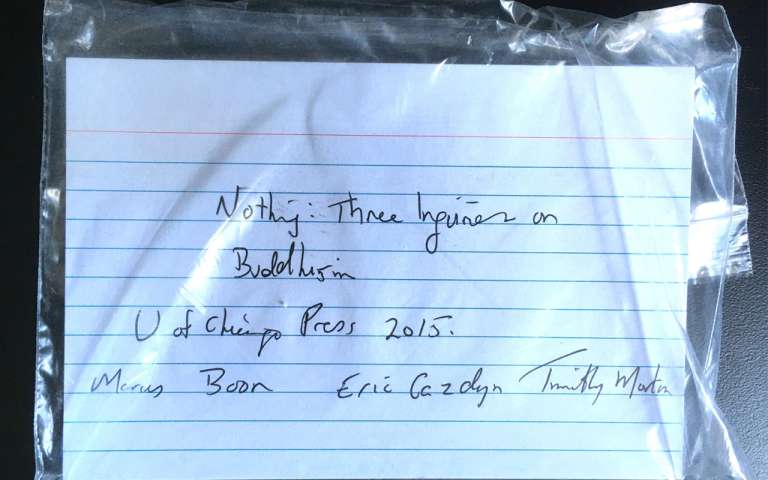 Nothing: Three Inquiries on
Buddhism
U of Chicago Press 2015.
Marcus Boon Eric Cazdyn Timothy Morton